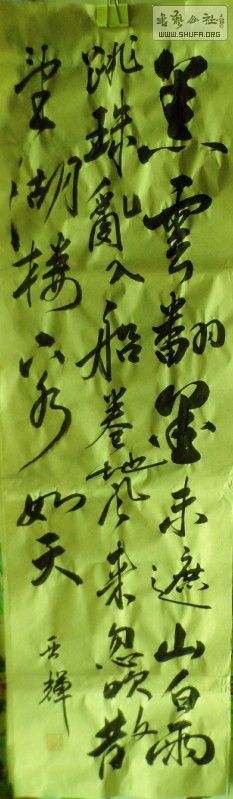 黑雲翻墨未遮山白雨
跳珠亂入船卷地风來忽吹散
望湖樓下水如天
書藝公社
WWW.SHUFA.ORG